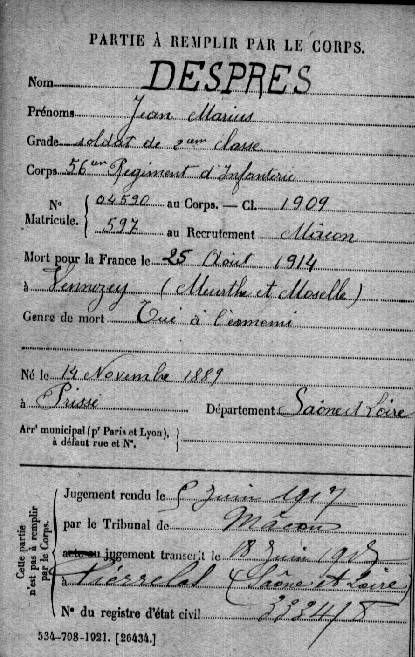 PARTIE À REMPLIR PAR LE CORPS.
Nom DESPRES
Prénoms Jean Marius
Grade soldat de 2eme classe
Corps 56eme Régiment d'Infanterie
N° 04590 au Corps. — Cl. 1909
Matricule. 597 au Recrutement Macon
Mort pour la France le 25 Août 1914
à Vennezey (Meurthe et Moselle)
Genre de mort Tué à l'ennemi
Né le 14 Novembre 1889
à Prissé Département Saône et Loire
Arrt municipal (pr Paris et Lyon), à défaut rue et N°.
Cette partie n'est pas à remplir par le Corps.
Jugement rendu le 5 Juin 1917
par le Tribunal de Mâcon
jugement transcrit le 18 Juin 1917
à (Saône et Loire)
N° du registre d'état civil
534-708-1921. [26434.]